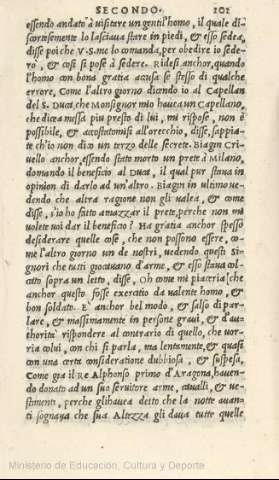 SECONDO. 101
essendo andato à visitare un gentil'homo, il quale di-
scortesemente lo lasciaua stare in piedi, & esso sedea,
disse poi che V.S. me lo comanda, per obedire io sede-
rò, & cosi si pose à sedere. Ridesi anchor, quando
l'homo con bona gratia accusa se stesso di qualche
errore, Come l'altro giorno dicendo io al Capellan
del S. Duca, che Monsignor mio hauea un Capellano,
che dicea messa piu presto di lui, mi rispose, non è
possibile, & accostatomisi all'orecchio, disse, sappia-
te ch'io non dico un terzo delle secrete. Biagin Criuello
anchor, essendo stato morto un prete à Milano,
domandò il beneficio al Duca, il qual pur staua in
opinion di darlo ad un'altro. Biagin in ultimo ue-
dendo che altra ragione non gli ualea, & come
disse, s'io ho fatto amazzar il prete, perche non mi
uolete uoi dar il beneficio? Ha gratia anchor spesso
desiderare quelle cose, che non possono essere, co-
me l'altro giorno un de nostri, uedendo questi Si-
gnori che tutti giocauano d'arme, & esso staua col-
cato sopra un letto, disse, Oh come mi piaceria, che
anchor questo fosse exercitio da ualente homo, &
bon soldato. E' anchor bel modo, & salso di par-
lare, & massimamente in persone graui, & d'au-
thorità rispondere al contrario di quello, che uor-
ria colui, con chi si parla, ma lentamente, & quasi
con una certa consideratione dubbiosa, & suspesa,
Come già il Re Alphonso primo d'Aragona, hauen-
do donato ad un suo seruitore arme, caualli, & ue-
stimenti, perche gli hauea detto che la notte auan-
ti sognaua che sua Altezza gli daua tutte quelle
Ministerio de Educación, Cultura y Deporte